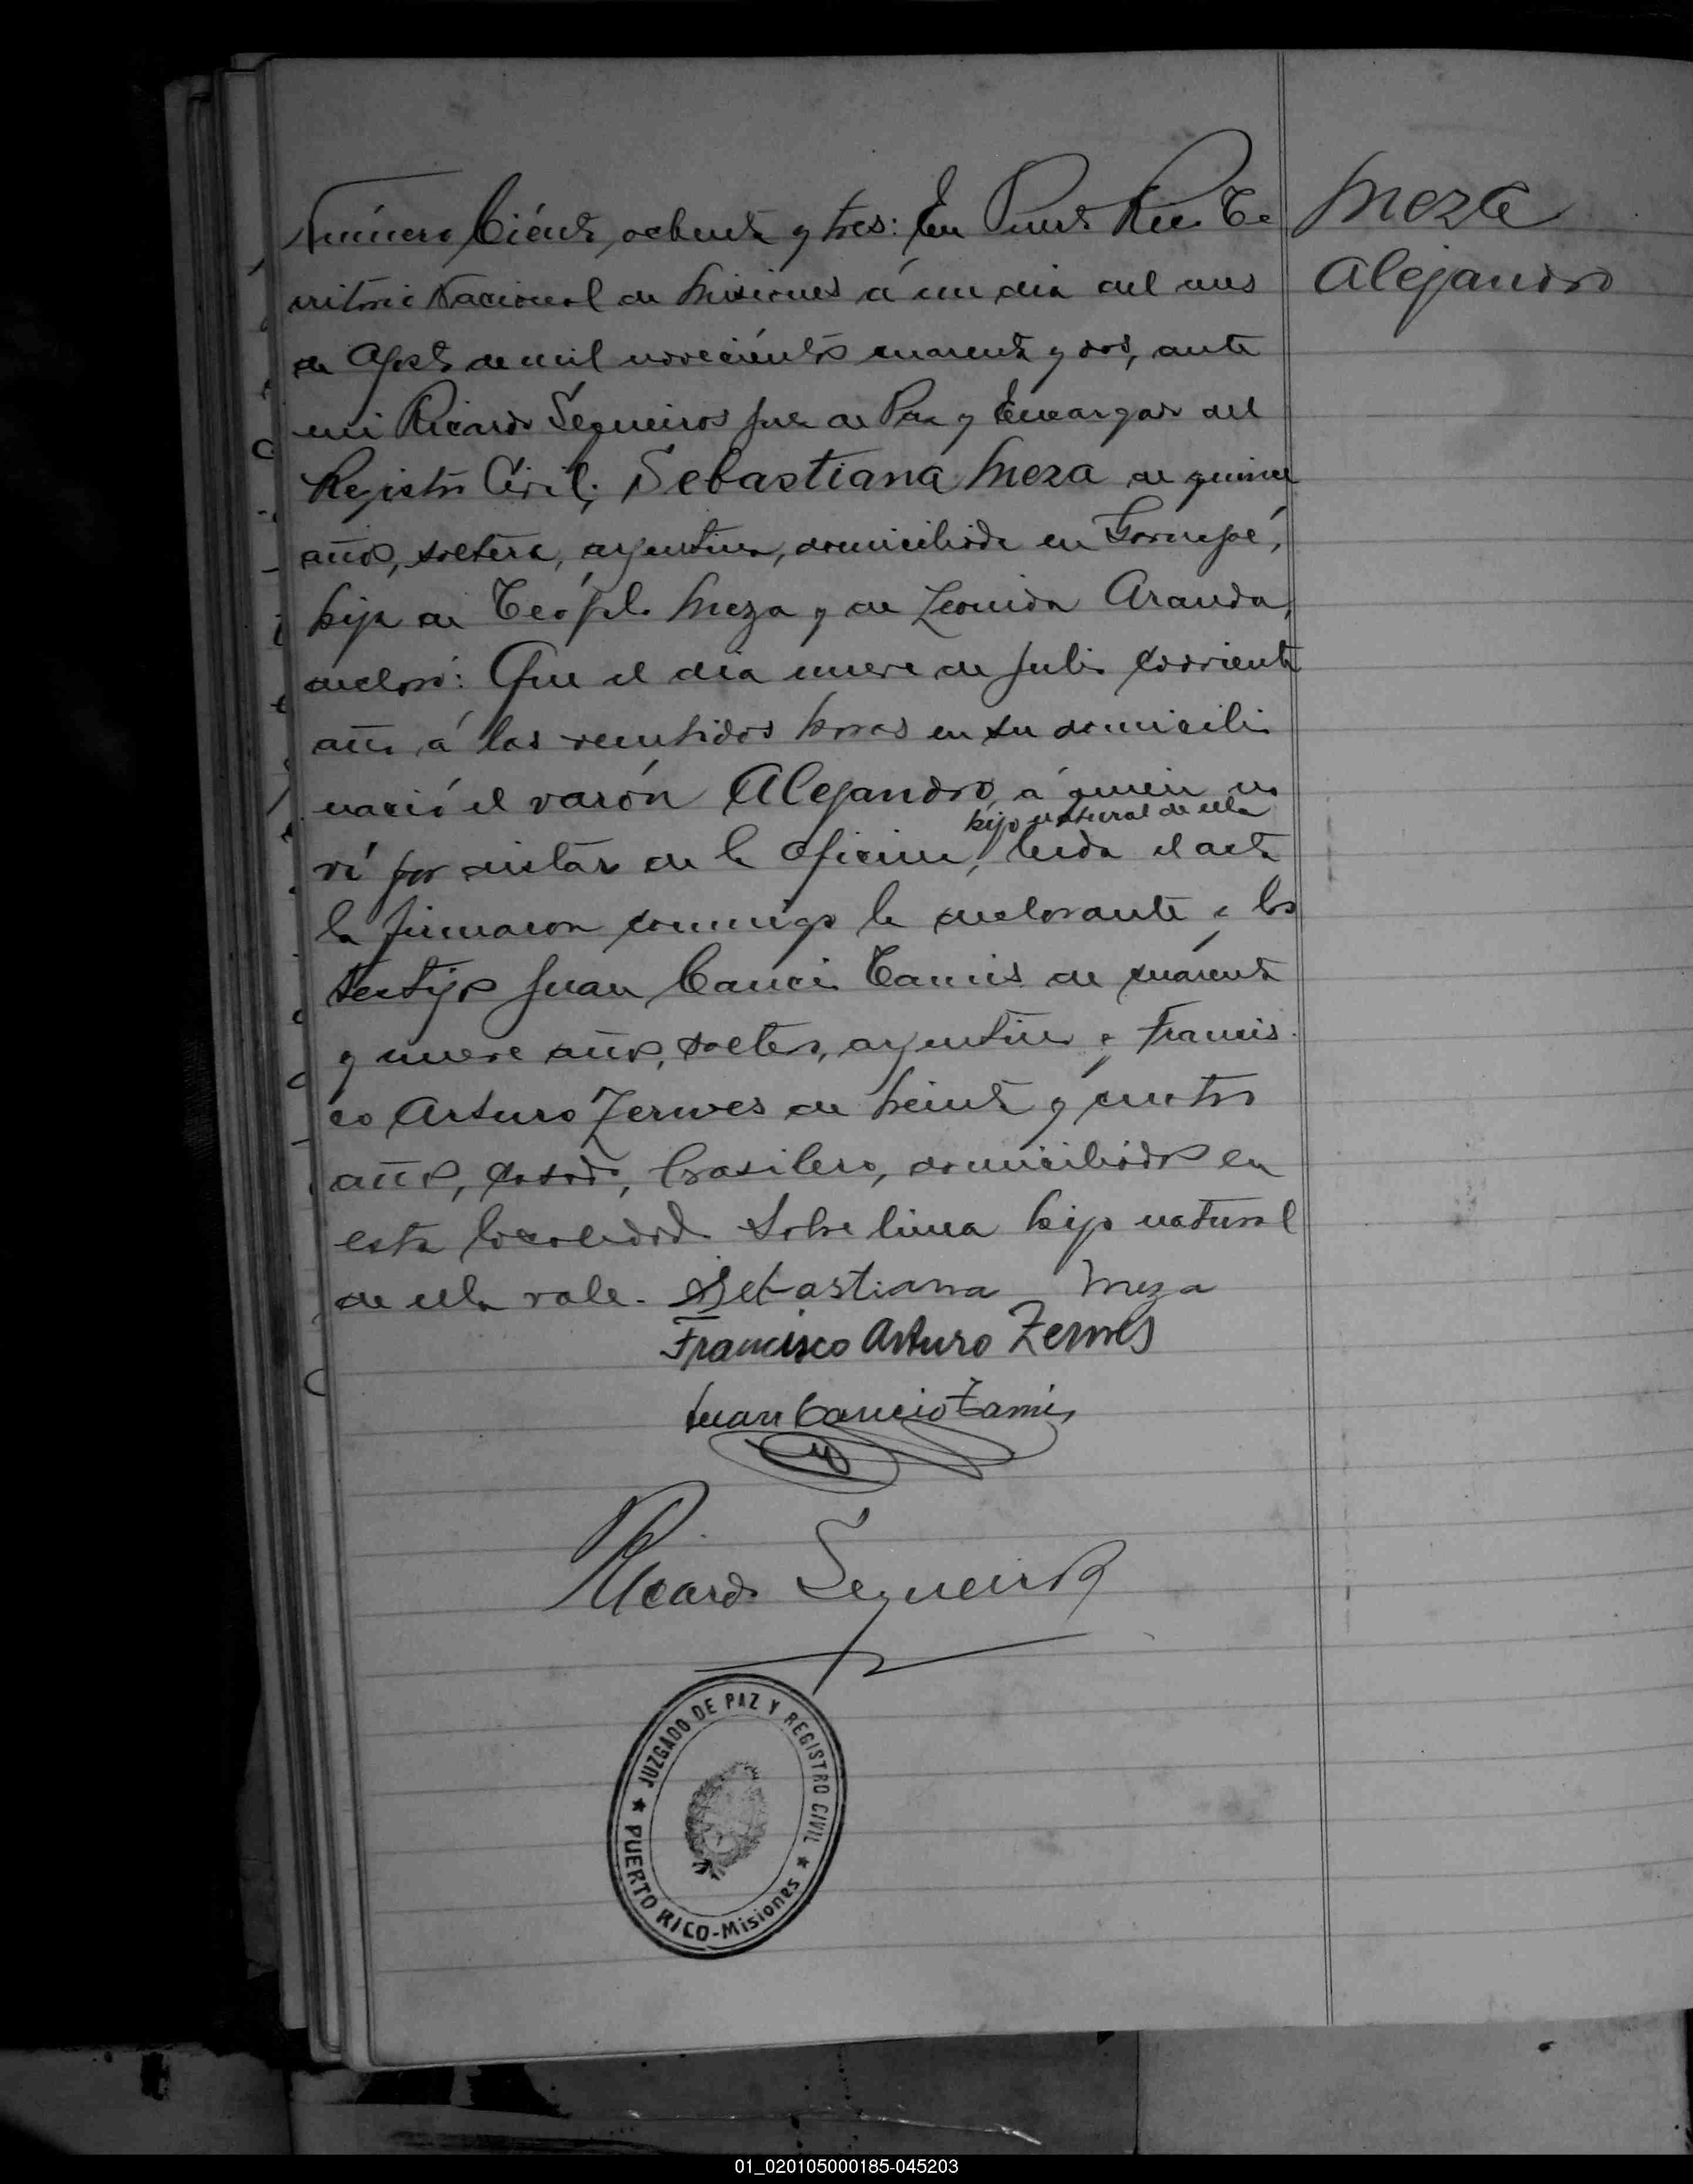 Número Ciento ochenta y tres: En Puerto Rico Te
Meza
rritorio Nacional de Misiones á un dia del mes
Alejandro
de Agosto de mil novecientos cuarenta y dos, ante
mi Ricardo Sequeiros Juez de Paz y Encargado del
Registro Civil; Sebastiana Meza de quince
años, soltera, argentina, domiciliada en
hija de Teófilo Meza y de Leonida Aranda,
declaró: Que el dia nueve de Julio corriente
año á las veintidos horas en su domicilio
nació el varón Alejandro, á quien no
hijo natural de ella
ví por distar de la oficina, leida el acta
la firmaron conmigo la declarante y los
testigos Juan Cancio Tamis de cuarenta
y nueve años, soltero, argentino y Francis
co Arturo Zerwes de treinta y cuatro
años, casado, brasilero, domiciliados en
esta localidad. Sobre linea hijo natural
de ella vale.- Sebastiana Meza
Francisco Arturo Zerwes
Juan Cancio Tamis
Ricardo Sequeiros
JUZGADO DE PAZ Y REGISTRO CIVIL
PUERTO RICO-Misiones
01_020105000185-045203